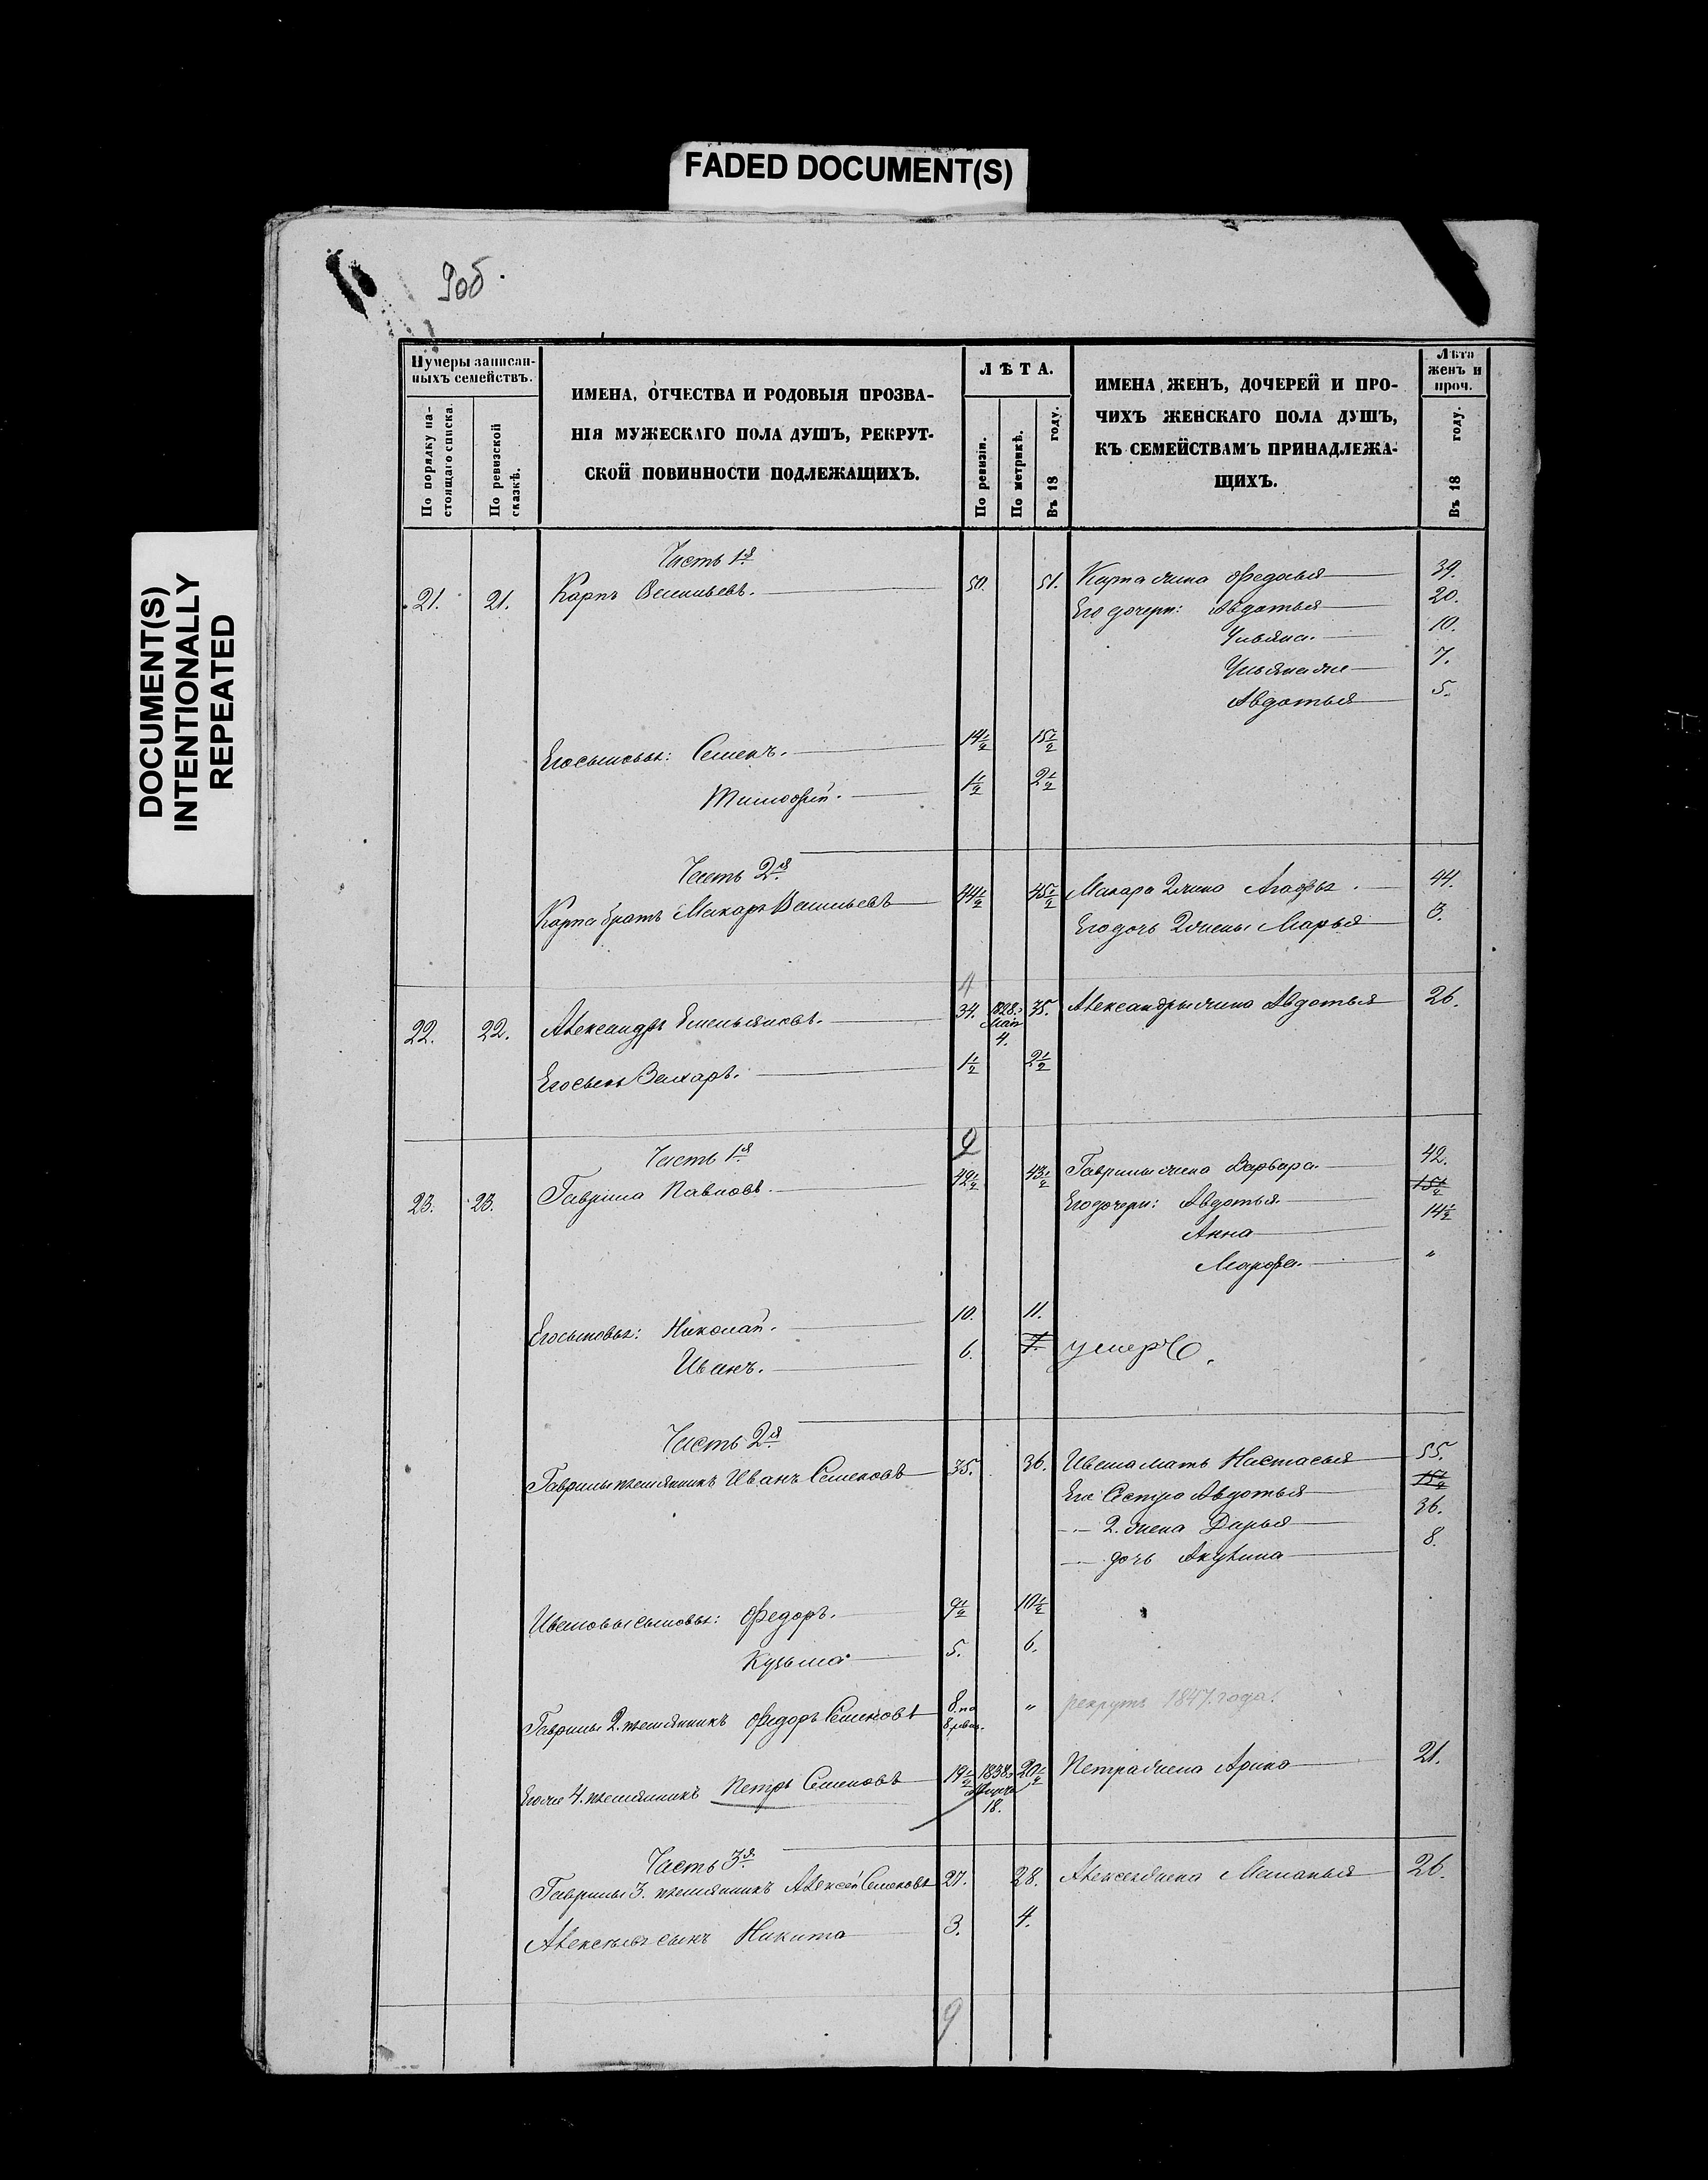 FADED DOCUMENT(S)
DOCUMENT(S)
INTENTIONALLY
REPEATED
9об.
Нумеры записан-
ныхъ семействъ.
По порядку на-
стоящаго списка.
По ревизской
сказкѣ.
ИМЕНА, ОТЧЕСТВА И РОДОВЫЯ ПРОЗВА-
НІЯ МУЖЕСКАГО ПОЛА ДУШЪ, РЕКРУТ-
СКОЙ ПОВИННОСТИ ПОДЛЕЖАЩИХЪ.
ЛѢТА.
По ревизіи.
По метрикѣ.
Въ 18 году.
ИМЕНА ЖЕНЪ, ДОЧЕРЕЙ И ПРО-
ЧИХЪ ЖЕНСКАГО ПОЛА ДУШЪ,
КЪ СЕМЕЙСТВАМЪ ПРИНАДЛЕЖА-
ЩИХЪ.
Лѣта
женъ и
проч.
Въ 18 году.
Часть 1я
21. 21. Карпъ Васильевъ. 50. 51. Карпа жена Федосья 39.
Его дочери: Авдотья 20.
Ульяна. 10.
Ульяна же 7.
Авдотья 5.
Его сыновья: Семенъ. 14½ 15½
Тимофей. 1½ 2½
Часть 2я
Карпа братъ Макаръ Васильевъ 44½ 45½ Макара 2 жена Агафья. 44.
Его дочь 2 жены Марья 3.
4
22. 22. Александръ Емельяновъ. 34. 1828. Мая 4. 35. Александры жена Авдотья 26.
Его сынъ Захаръ. 1½ 2½
2
Часть 1я
23. 23. Гаврила Павловъ. 42½ 43½ Гаврилы жена Варвара. 42.
Его дочери: Авдотья 15½
Анна 14½
Марфа. "
Его сыновья: Николай. 10. 11.
Иванъ. 6. 7. умеръ.
Часть 2я
Гаврилы племянникъ Иванъ Семеновъ 35. 36. Ивана мать Настасья 55.
Его Сестра Авдотья 15½
— 2. жена Дарья 36.
— дочь Акулина 8.
Ивановы сыновья: Федоръ. 9½ 10½
Кузьма 5. 6.
Гаврилы 2. племянникъ Федоръ Семеновъ 8. по 8 ревиз. " рекрутъ 1847. года.
Его же 4. племянникъ Петръ Семеновъ 19½ 1838. 18. 20½ Петра жена Арина 21.
Часть 3я
Гаврилы 3. племянникъ Алексей Семеновъ 27. 28. Алексея жена Меланья 26.
Алексеевъ сынъ Никита 3. 4.
9